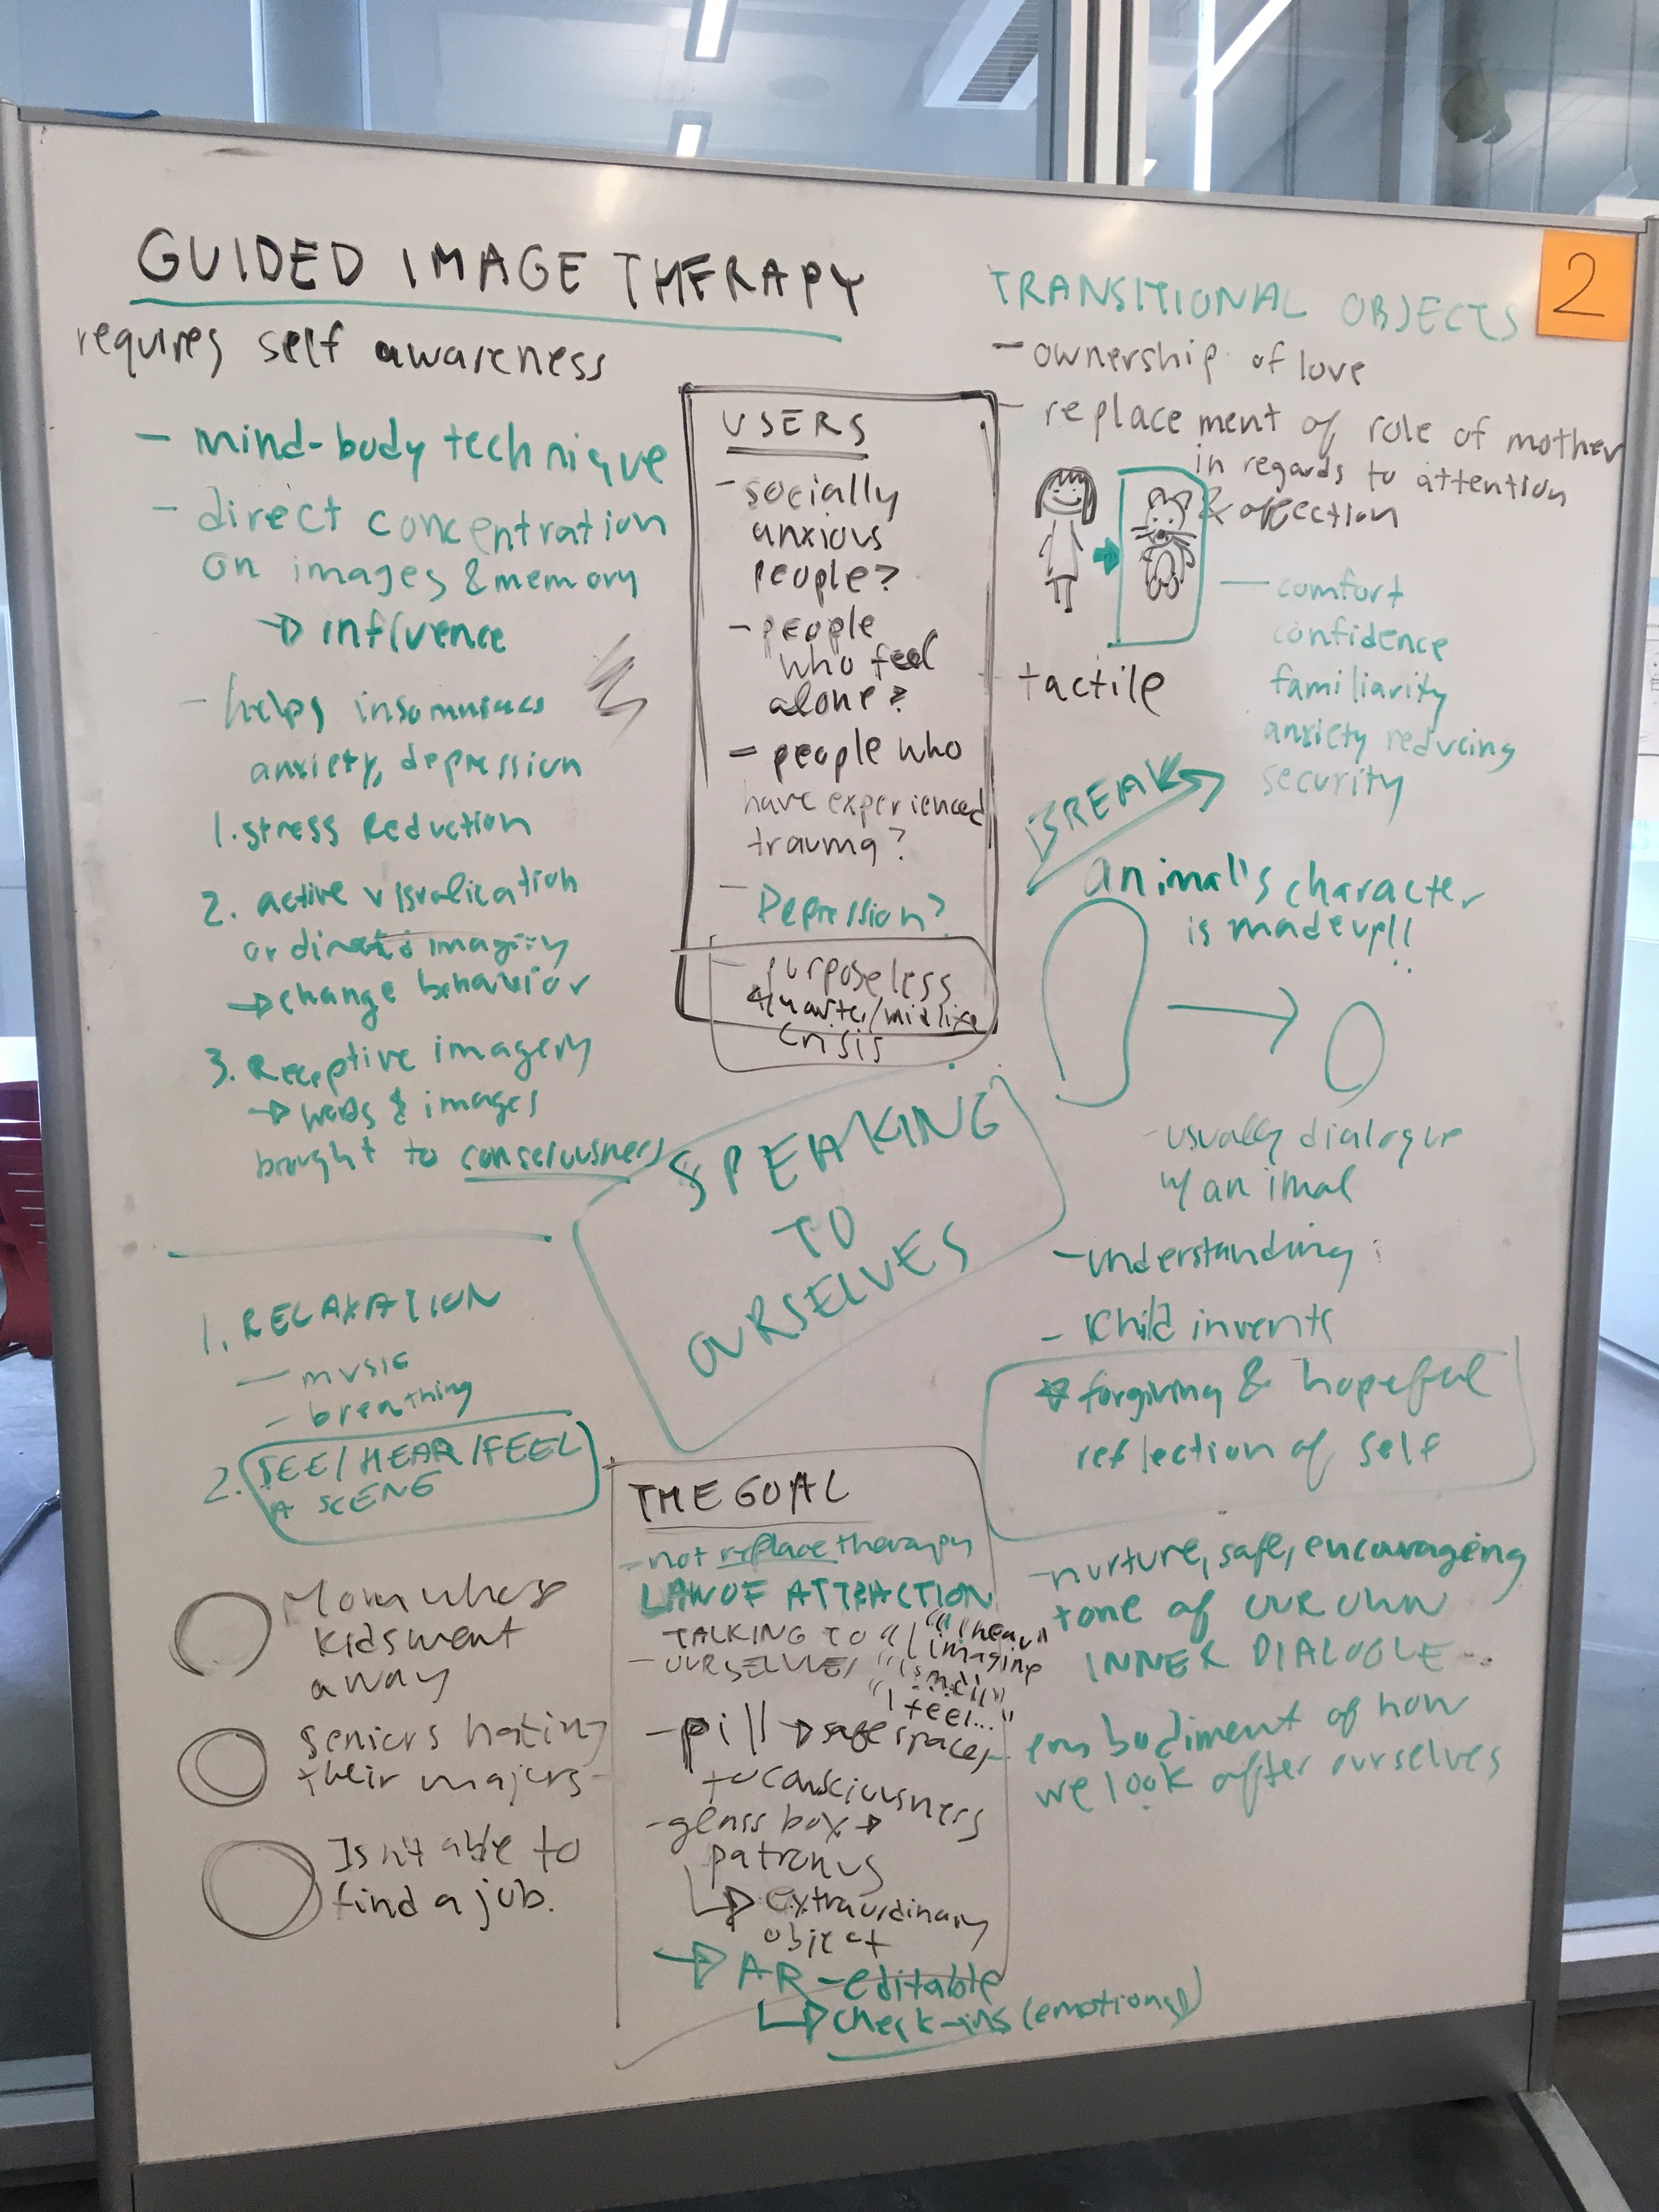 GUIDED IMAGE THERAPY
requires self awareness
- mind-body technique
- direct concentration
on images & memory
→ influence
- helps insomniacs
anxiety, depression
1. stress Reduction
2. active visualication
or directed imagiry
→ change behavior
3. Receptive imagery
→ words & images
brought to consciousness
1. RELAXATION
- music
- breathing
2. SEE/HEAR/FEEL
A SCENE
Mom whose
kids went
away
Seniors hating
their majors
Isn't able to
find a job.
USERS
- socially
anxious
people?
- people
who feel
alone?
- people who
have experienced
trauma?
- Depression?
- purposeless
quarter/midlife
crisis
SPEAKING
TO
OURSELVES
THE GOAL
- not replace therapy
LAW OF ATTRACTION
TALKING TO
- OURSELVES
"I hear"
"I imagine
"I smell"
"I feel..."
- pill → safe space,
to consciousness
- glass box →
patronus
→ extraordinary
object
→ AR - editable
→ check-ins (emotions)
2
TRANSITIONAL OBJECTS
- ownership of love
- replacement of role of mother
in regards to attention
& affection
- comfort
confidence
familiarity
anxiety reducing
security
- tactile
BREAK
animal's character
is made up!!
- usually dialogue
w/ animal
- understanding
- Child invents
forgiving & hopeful
reflection of self
- nurture, safe, encourageing
tone of our own
INNER DIALOGUE...
- embodiment of how
we look after ourselves